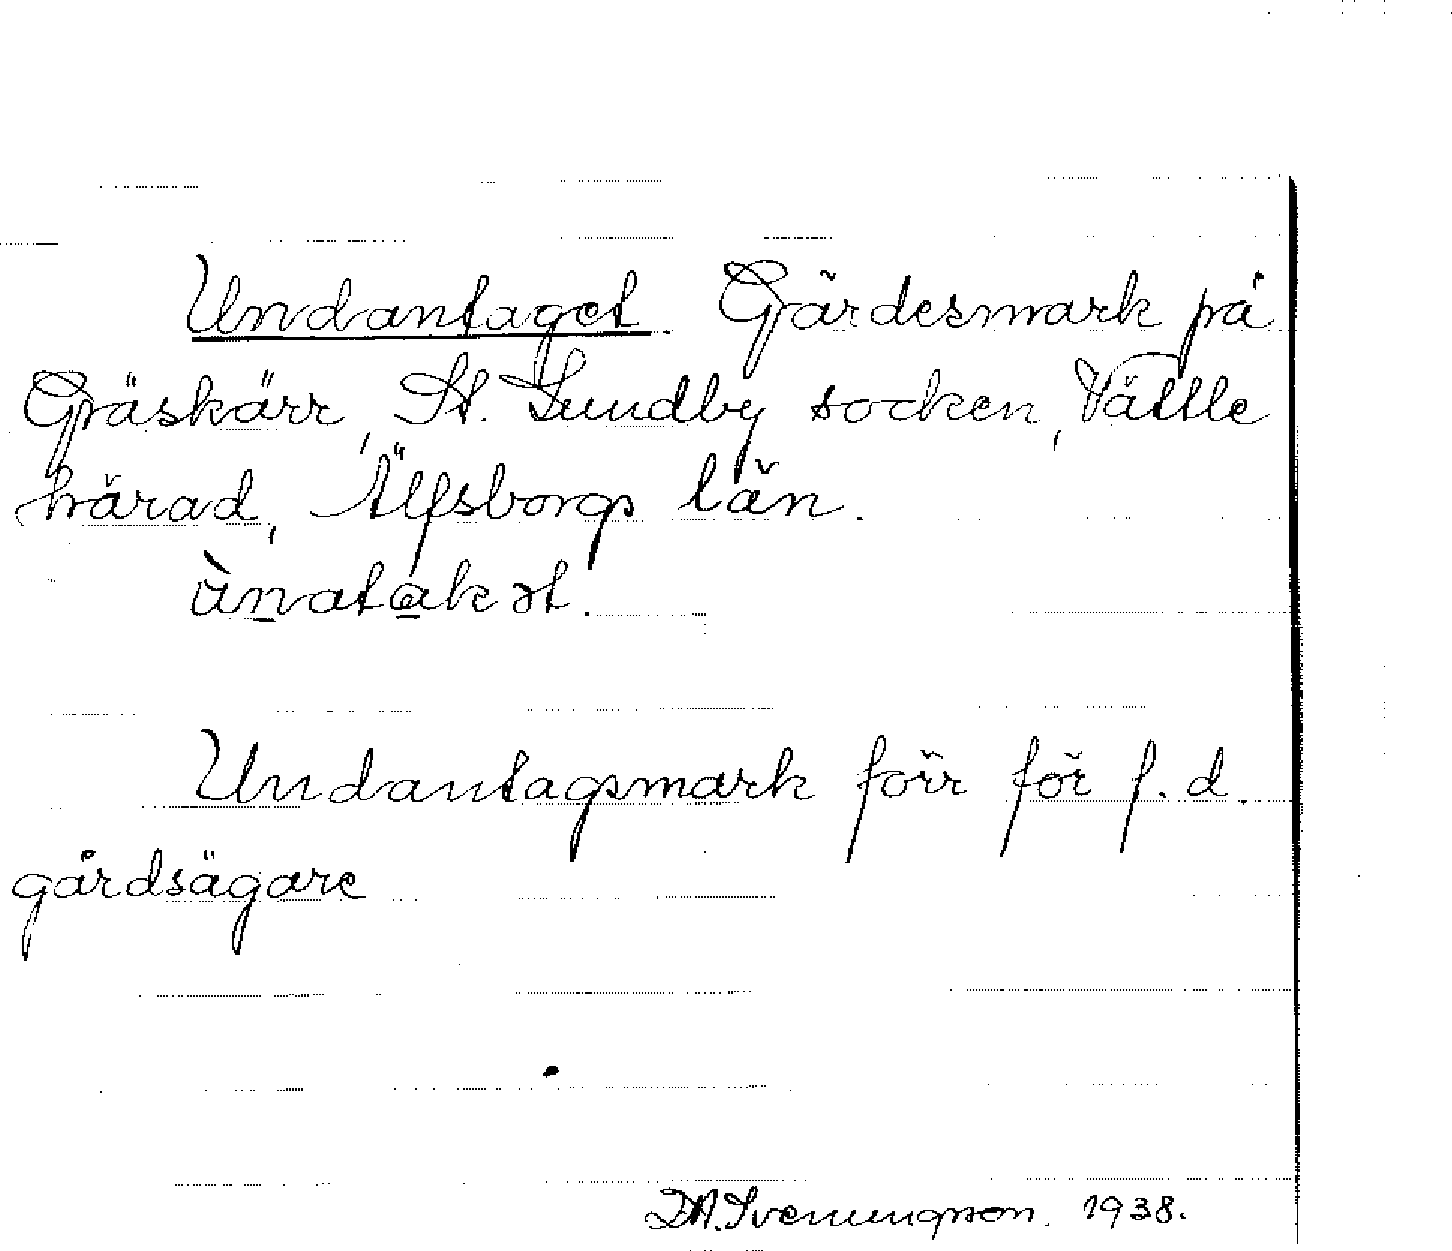 Undantaget Gärdesmark på
Gräskärr, St. Lundby socken, Vättle
härad, Älfsborgs län.
Undantagsmark förr för f.d.
gårdsägare
D.A. Svenungson. 1938.